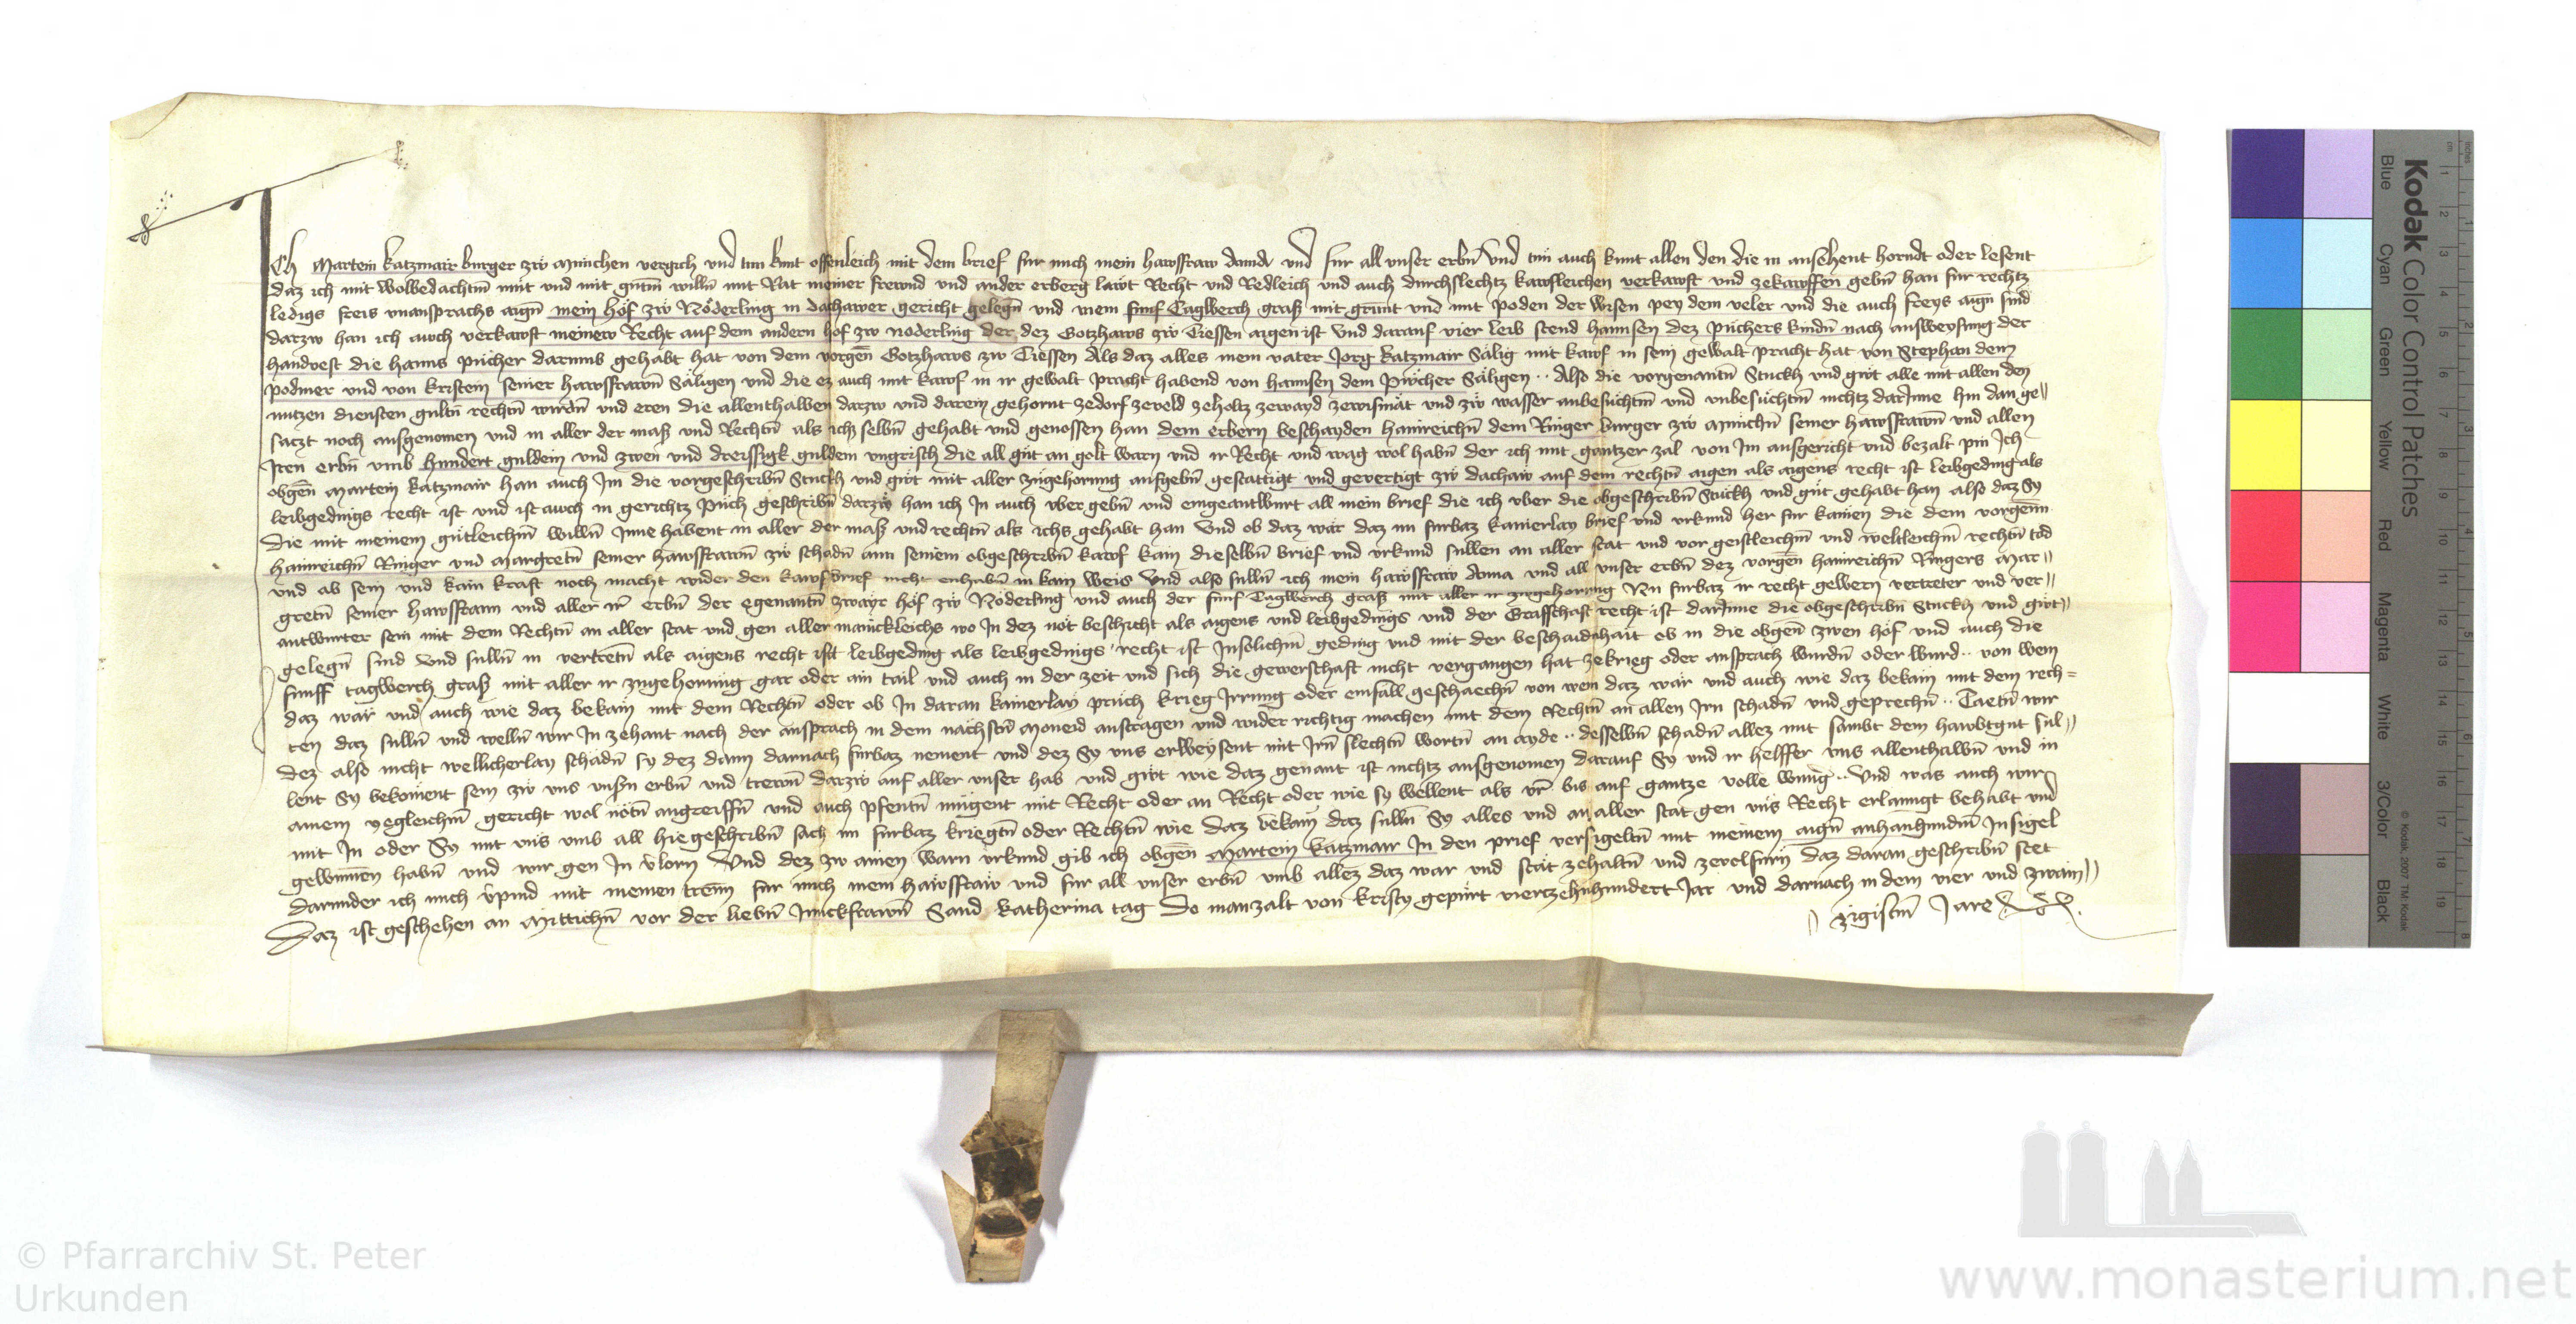 Ich Martein katzmair burger zw Munchen vergich und tun kunt offenleich mit dem brief fur mich mein hawsfraw Anna und fur all unser erbn Und tun auch kunt allen den die in ansehent horndt oder lesent
daz ich mit wolbedachtm mut und mit gutm willn mit Rat meiner frewnd und ander erberg lawt Recht und Redleich und auch durchslechtz kawfleichen verkawft und zekawffen gebn han fur rechtz
ledigs freis unansprachs aign mein hof zw Noderling in dachawer gericht gelegn und mein funf Tagwerch graß mit grunt und mit poden der wisen pey dem veler und die auch freys aign sind
darzw han ich auch verkawft meinew Recht auf dem andern hof zw noderling der dez Gotzhaws zw Tiessen aigen ist Und darauf vier leib stend hannsen dez puchers kindn nach ausweysung der
handvest die hanns pucher darumb gehabt hat von dem vorgen Gotzhaws zw Tiessen Als daz alles mein vater Jorg katzmair Sälig mit kawf in sein gewalt pracht hat von Stephan dem
podmer und von kristein seiner hawsfrawn Säligen und die ez auch mit kawf in ir gewalt pracht habend von hannsen dem pucher Säligen ·· Also die vorgenantn Stuckh und gut alle mit allen den
nutzen diensten gultn rechtn wirdn und eren die allenthalben darzw und darein gehornt zedorf zeveld zeholtz zewayd zewismät und zw wasser anbesuchtm und unbesuchtm nichtz darInne hin dan ge
saczt noch ausgenomen und in aller der maß und Rechtn als ichs selbn gehabt und genossen han dem erbern beschayden hainreichn dem Ringer burger zw Munichn seiner hawsfrawn und allen
Iren erbn umb hundert guldein und zwen und dreissigk guldein ungrisch die all gut an golt warn und ir Recht und wag wol habn der ich mit gantzer zal von Im ausgericht und bezalt pin Ich
obgen Martein katzmair han auch Im die vorgeschribn Stuckh und gut mit aller zugehorung aufgebn gestattigt und gevertigt zw dachaw auf dem rechtn aigen als aigens recht ist leibgeding als
leibgedings recht ist und ist auch in gerichtz puch geschribn darzw han ich In auch uber gebn und eingeantwurt all mein brief die ich uber die obgeschribn Stuckh und gut gehabt han also daz Sy
die mit meinem gutleichm willn Inne habent in aller der maß und rechtn als ichs gehabt han Und ob daz war daz nu furbaz kainerlay brief und urkund her fur kamen die dem vorgenn
hainreichn Ringer und Margretn seiner hawsfrawn zw schadn an seinem obgeschribn kawf kam dieselbn brief und urkund sullen an aller stat und vor geistleichm und weltleichm rechtn tod
und ab sein und kain kraft noch macht wider den kawfbrief nicht enhabn in kain weis Und also sulln ich mein hawsfraw Anna und all unser erbn dez vorgen hainreichn Ringers Mar
gretn seiner hawsfrawn und aller ir erbn der egenantn zwayr hof zw Noderling und auch der funf Tagwerch graß mit aller ir zugehorung Nu furbaz ir recht gewern vertreter und ver
antwurter sein mit dem Rechtn an aller stat und gen aller manickleichs wo In dez not beschicht als aigens und leibgedings und der Grafschaft recht ist darInne die obgeschribn Stuckh und gut
gelegn sind Und sulln in vertretn als aigens recht ist leibgeding als leibgedings recht ist Insolichm geding und mit der beschaidnhait ob in die obgen zwen hof und auch die
funff tagwerch graß mit aller ir zugehorung gar oder ain tail und auch in der zeit und sich die gewerschaft nicht vergangen hat zekrieg oder ansprach wurdn oder wurd ·· von wem
daz wär und auch wie daz bekam mit dem Rechtn oder ob In daran kainerlay pruch krieg Irrung oder einfall geschaechn von wem daz war und auch wie daz bekam mit dem rech
ten daz sulln und welln wir In zehant nach der ansprach in dem nächstn Moneid austragen und wider richtig machen mit dem Rechtn an allen Irn schadn und geprechn ·· Taetn wir
dez also nicht wellicherlay schadn sy dez dann darnach furbaz nement und dez Sy uns erweysent mit Irn slechtn wortn an ayde ·· desselbn schadn allez mit sambt dem hawbtgut sul
lent Sy bekoment sein zw uns unsn erbn und trewn darzw auf aller unser hab und gut wie daz genant ist nichtz ausgenomen darauf Sy und ir helffer uns allenthalbn und in
ainem yegleichm gericht wol notn angreiffn und auch pfentn mugent mit Recht oder an Recht oder wie sy wellent als vr bis auf gantze volle werung ·· Und was auch wir
mit In oder Sy mit uns umb all hiegeschribn sach nu furbaz kriegtn oder Rechtn wie daz bekam daz sulln Sy alles und an aller stat gen uns Recht erlanngt behabt und
gewunnen habn und wir gen In vlorn Und dez zw ainen warn urkund gib ich obgen Martein katzmair In den prief versigeltn mit meinem aign anhangundm Insigel
darunder ich mich vpind mit meinen trewn fur mich mein hawsfraw und fur all unser erbn umb allez daz war und stät zehaltn und zevolfurn daz daran geschribn stet
Daz ist geschehen an Mittichn vor der liebn Junckfrawn Sand Katherina tag Do man zalt von kristy gepurt vierczehnhundert Jar und darnach in dem vier und zwain
zigistm Jare
Kodak Color Control Patches
Blue Cyan Green Yellow Red Magenta White 3/Color Black
© Kodak, 2007 TM: Kodak
cm 1 2 3 4 5 6 7 8 9 10 11 12 13 14 15 16 17 18 19
Inches 1 2 3 4 5 6 7 8
© Pfarrarchiv St. Peter
Urkunden
www.monasterium.net